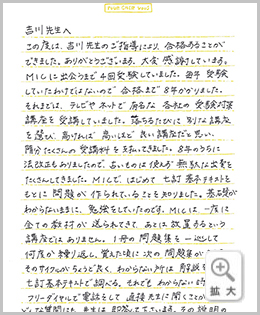 吉川先生へ
この度は、吉川先生のご指導により、合格することが
できました。ありがとうございます。大変感謝しています。
MICに出会うまで4回受験していました。毎年受験
していたわけではないので合格まで8年かかりました。
それまでは、テレビやネットで有名な各社の受験対策
講座を受講していました。落ちるたびに別な講座
を選び、高ければ高いほど良い講座だと思い、
随分たくさんの受講料を支払ってきました。8年のうちに
法改正もありましたので、古いものは使えず無駄な出費を
たくさんしてきました。MICで、はじめて七訂基本テキストを
もとに問題が作られていることを知りました。基礎が
わからないままに、勉強をしていたのです。MICは一度に
全ての教材が送られてきて、あとは放置するという
講座ではありません。1冊の問題集を一巡して
何度か繰り返し、覚えた頃に次の問題集が
そのサイクルがちょうど良く、わからない所は解説を
七訂基本テキストで調べる。それでもわからない時
フリーダイヤルで電話をして直接先生に聞くことが
どんな質問にも、先生は即答して下さいます。その説明の
拡大